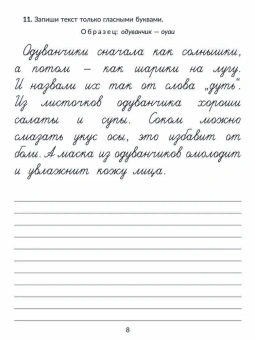 11. Запиши текст только гласными буквами.
Образец: одуванчик — оуаи
Одуванчики сначала как солнышки,
а потом — как шарики на лугу.
И назвали их так от слова „дуть".
Из листочков одуванчика хороши
салаты и супы. Соком можно
смазать укус осы, это избавит от
боли. А маска из одуванчиков омолодит
и увлажнит кожу лица.
8